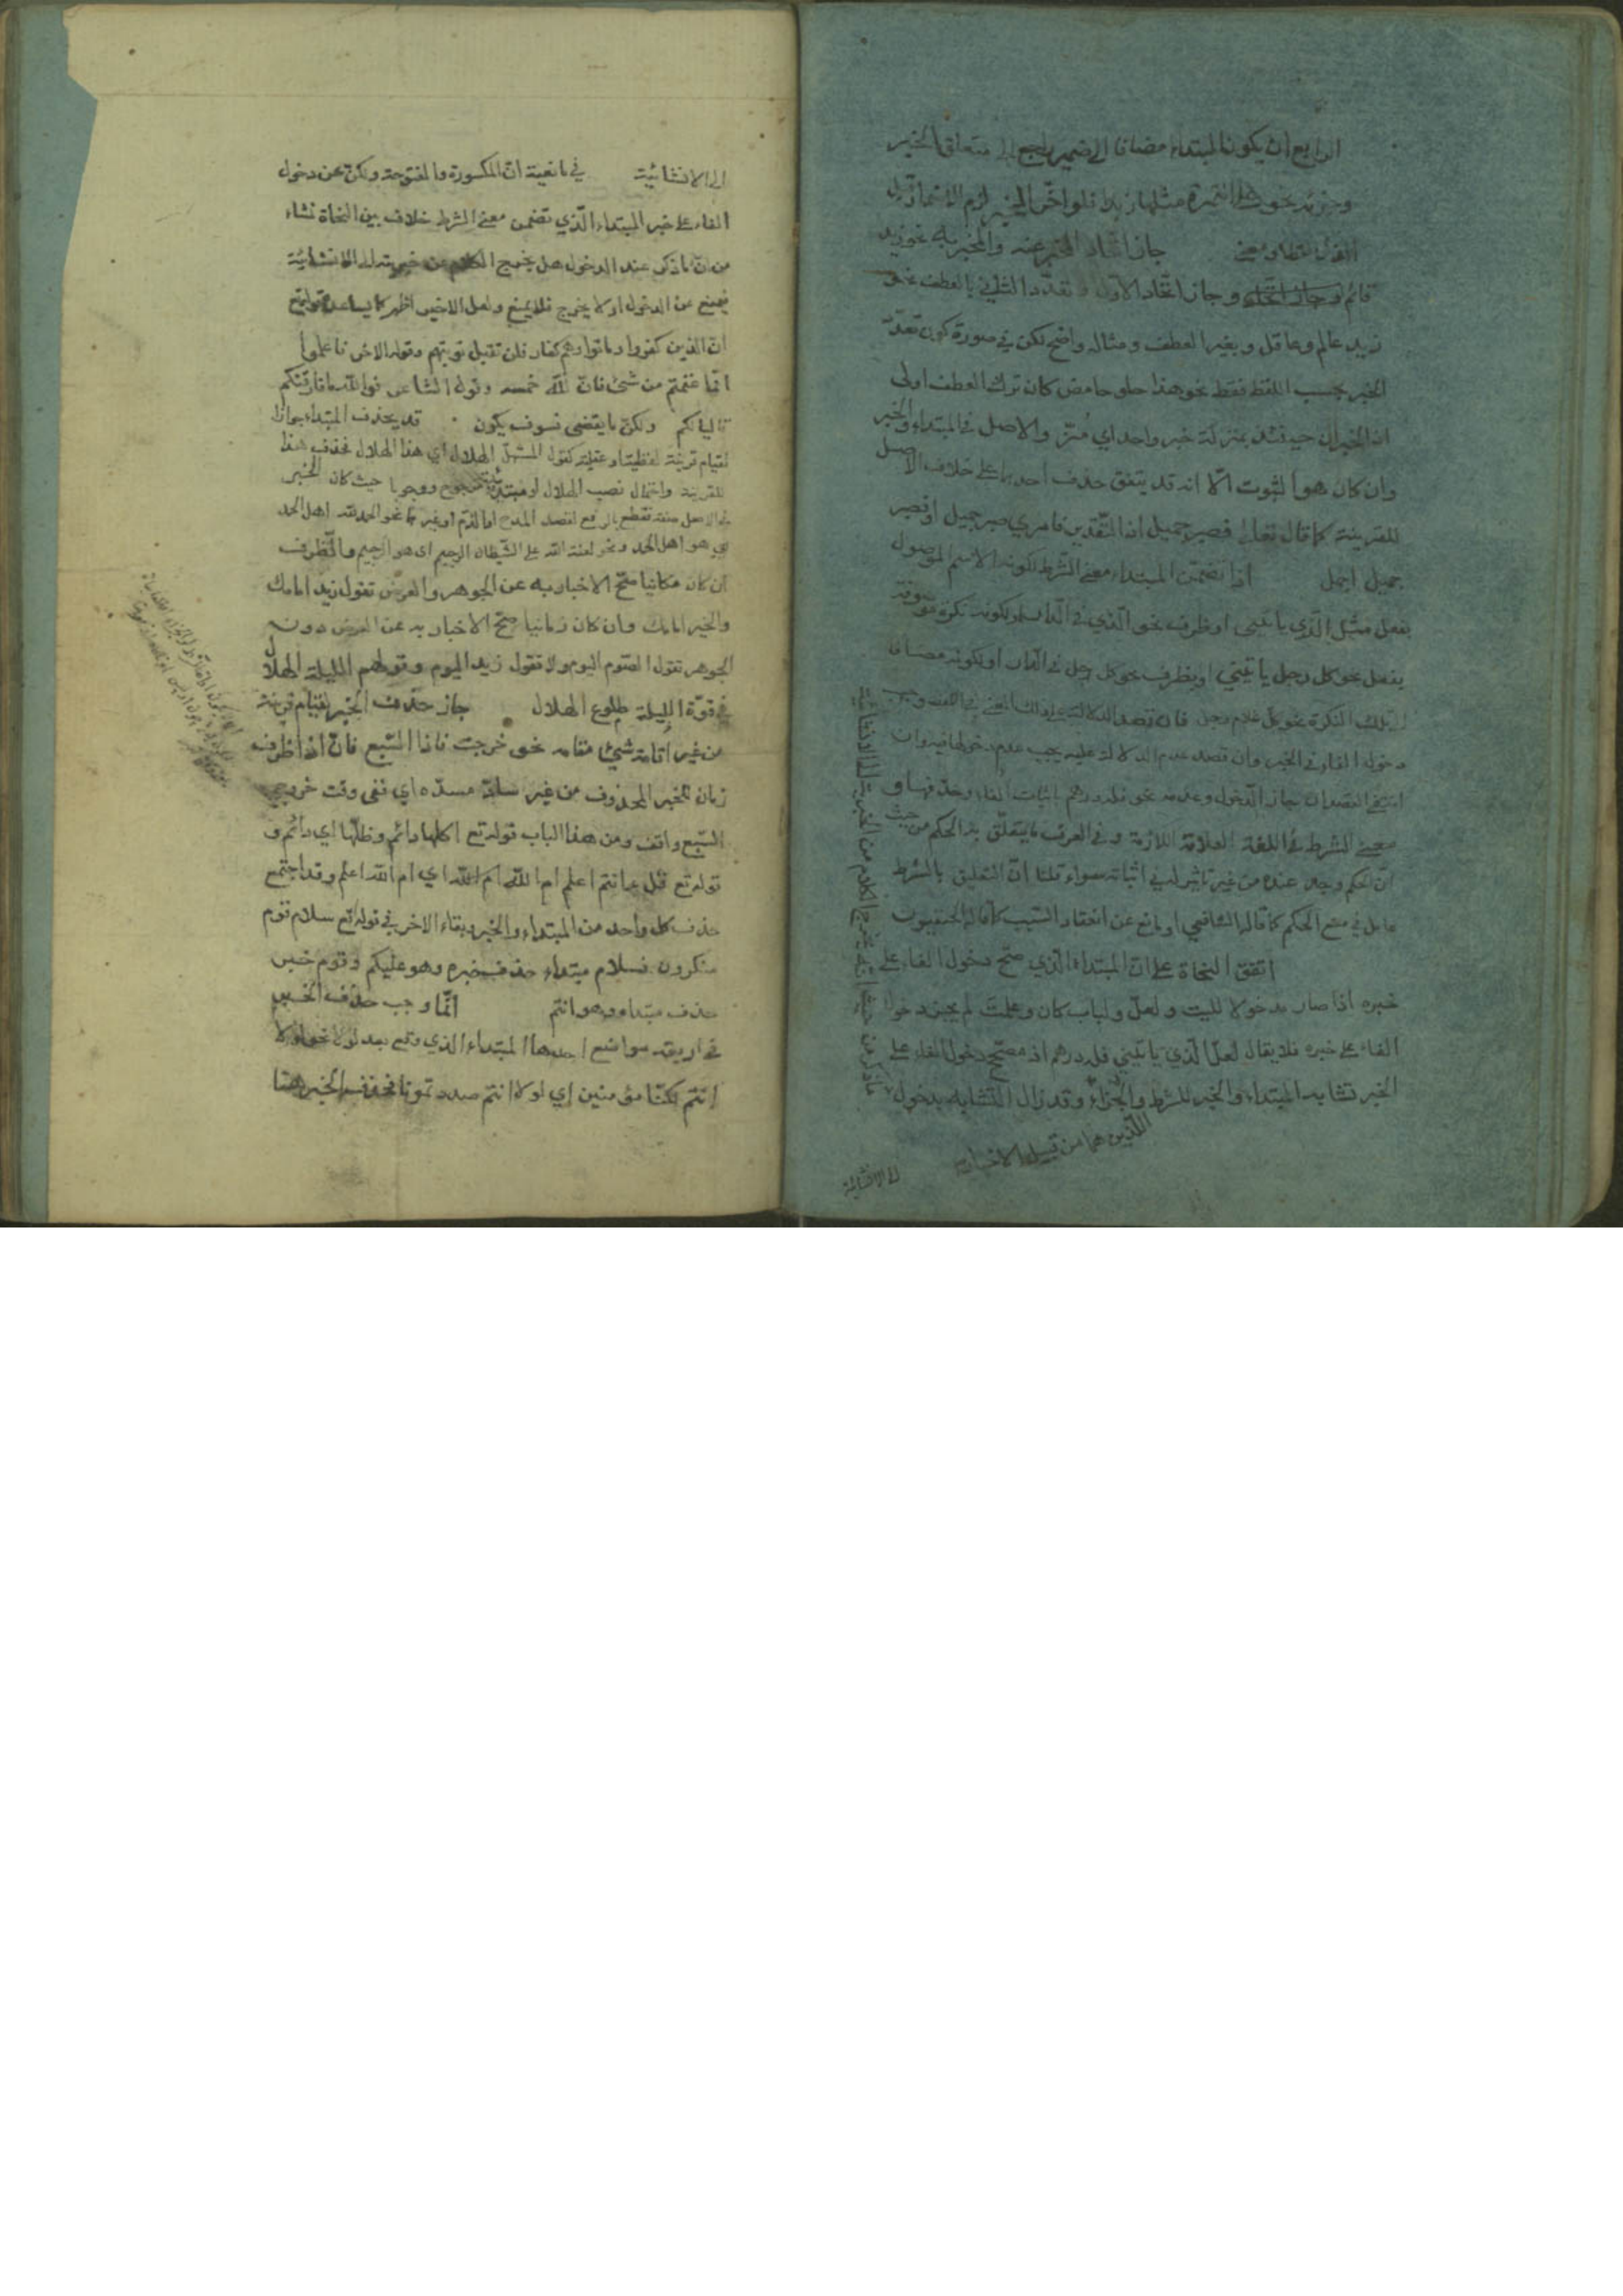 الرابع ان يكون المبتداء مضافا الى ضمير راجع الى متعلق الخبر
وحو نحو على التمرة مثلها زبدا فلو اخّر الخبر لزم الاضمار قبل
الذكر لفظا ومعنى جاز اتحاد المخبر عنه والمخبر به نحو زيد
قائم وجاز اتحاد الاول و تعدّد الثاني بالعطف نحو
زيد عالم وعاقل وبغير العطف ومثاله واضح لكن في صورة كون تعدّد
الخبر بحسب اللفظ فقط نحو هذا حلو حامض كان ترك العطف اولى
اذ الخبران حينئذ بمنزلة خبر واحد اي مُزّ والاصل في المبتداء والخبر
وان كان هو الثبوت الّا انه قد يتفق حذف احدهما على خلاف الاصل
للقرينة كما قال تعالى فصبر جميل اذ التقدير فامري صبر جميل او فصبر
جميل اجمل اذا تضمّن المبتداء معنى الشرط لكونه الاسم الموصول
بفعل مثل الذي ياتيني او ظرف نحو الذي في الدار او لكونه نكرة موصوفة
بفعل نحو كل رجل ياتيني او بظرف نحو كل رجل في الدار او لكونه مضافا
الى تلك النكرة نحو كل غلام رجل فان قصد الدلالة على ذلك المعنى في اللفظ وجب
دخول الفاء في الخبر وان قصد عدم الدلالة عليه يجب عدم دخولها فيه وان
انتفى القصدان جاز الدخول وعدمه نحو فله درهم باثبات الفاء وحذفها و
معنى الشرط في اللغة العلاقة اللازمة وفي العرف ما يتعلّق به الحكم من حيث
انّ الحكم وجد عنده من غير تاثير له في اثباته سواء قلنا انّ التعليق بالشرط
عامل في منع الحكم كما قاله الشافعي او مانع عن انعقاد السبب كما قاله الحنفيون
اتفق النحاة على انّ المبتداء الذي صح دخول الفاء على
خبره اذا صار مدخولا لليت ولعلّ ولباب كان وعلمت لم يجز دخول
الفاء على خبره فلا يقال لعلّ الذي ياتيني فله درهم اذ مصحّح دخول الفاء على
الخبر تشابه المبتداء والخبر للشرط والجزاء وقد زال التشابه بدخول
اللذين هما من قبيل الاخبار
ما ذكر من حيث انه يخرج الكلام من الخبرية الى الانشائية
الى الانشائية
الى الانشائية في مانعية انّ المكسورة والمفتوحة ولكنّ عن دخول
الفاء على خبر المبتداء الذي تضمن معنى الشرط خلاف بين النحاة نشاء
من انّ ما ذكر عند الدخول هل يخرج الكلام من خبريته الى الانشائية
فيمنع عن الدخول او لا يخرج فلا يمنع ولعل الاخير اظهر كما يساعده قوله تع
انّ الذين كفروا وماتوا وهم كفار فلن تقبل توبتهم وقوله الاخر فاعلموا
انّما غنمتم من شئ فانّ لله خمسه وقول الشاعر فوالله ما فارقتكم
قاليا لكم ولكنّ ما يقضى فسوف يكون قد يحذف المبتداء جوازا
لقيام قرينة لفظية او عقلية كقول المستهلّ الهلال اي هذا الهلال فحذف هذا
للقرينة واحتمال نصب الهلال او مبتدئيته مرجوح ووجوبا حيث كان الخبر
في الاصل صفة فقطع بالرفع لقصد المدح او الذم او غيرهما نحو الحمد لله اهل الحمد
اي هو اهل الحمد ونحو لعنة الله على الشيطان الرجيم اي هو الرجيم والظرف
ان كان مكانيا صحّ الاخبار به عن الجوهر والعرض تقول زيد امامك
والخير امامك وان كان زمانيا صحّ الاخبار به عن العرض دون
الجوهر تقول الصوم اليوم ولا تقول زيد اليوم وقولهم الليلة الهلال
في قوّة الليلة طلوع الهلال جاز حذف الخبر لقيام قرينة
من غير اقامة شئ مقامه نحو خرجت فاذا السّبع فانّ اذا ظرف
زمان للخبر المحذوف من غير سادّ مسدّه اي ففي وقت خروجي
السّبع واقف ومن هذا الباب قوله تع اكلها دائم وظلّها اي دائم و
قوله تع قل ءانتم اعلم ام الله ام الله اي ام الله اعلم وقد اجتمع
حذف كل واحد من المبتداء والخبر وبقاء الاخر في قوله تع سلام قوم
منكرون فسلام مبتداء حذف خبره وهو عليكم وقوم خبر
حذف مبتداءه وهو انتم انّما وجب حذف الخبر
في اربعة مواضع احدها المبتداء الذي وقع بعد لولا نحو لولا
انتم لكنّا مؤمنين اي لولا انتم صددتمونا فحذف الخبر هنا